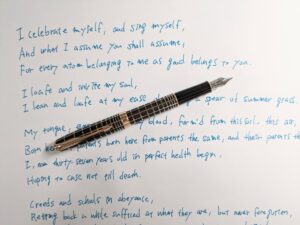 I celebrate myself, and sing myself,
And what I assume you shall assume,
For every atom belonging to me as good belongs to you.
I loafe and invite my soul,
I lean and loafe at my ease a spear of summer grass.
My tongue, blood, form'd from this soil, this air,
Born parents born here from parents the same, and their parents
I, thirty-seven years old in perfect health begin,
Hoping to cease not till death.
Creeds and schools in abeyance,
Retiring back a while sufficed at what they are, but never forgotten,